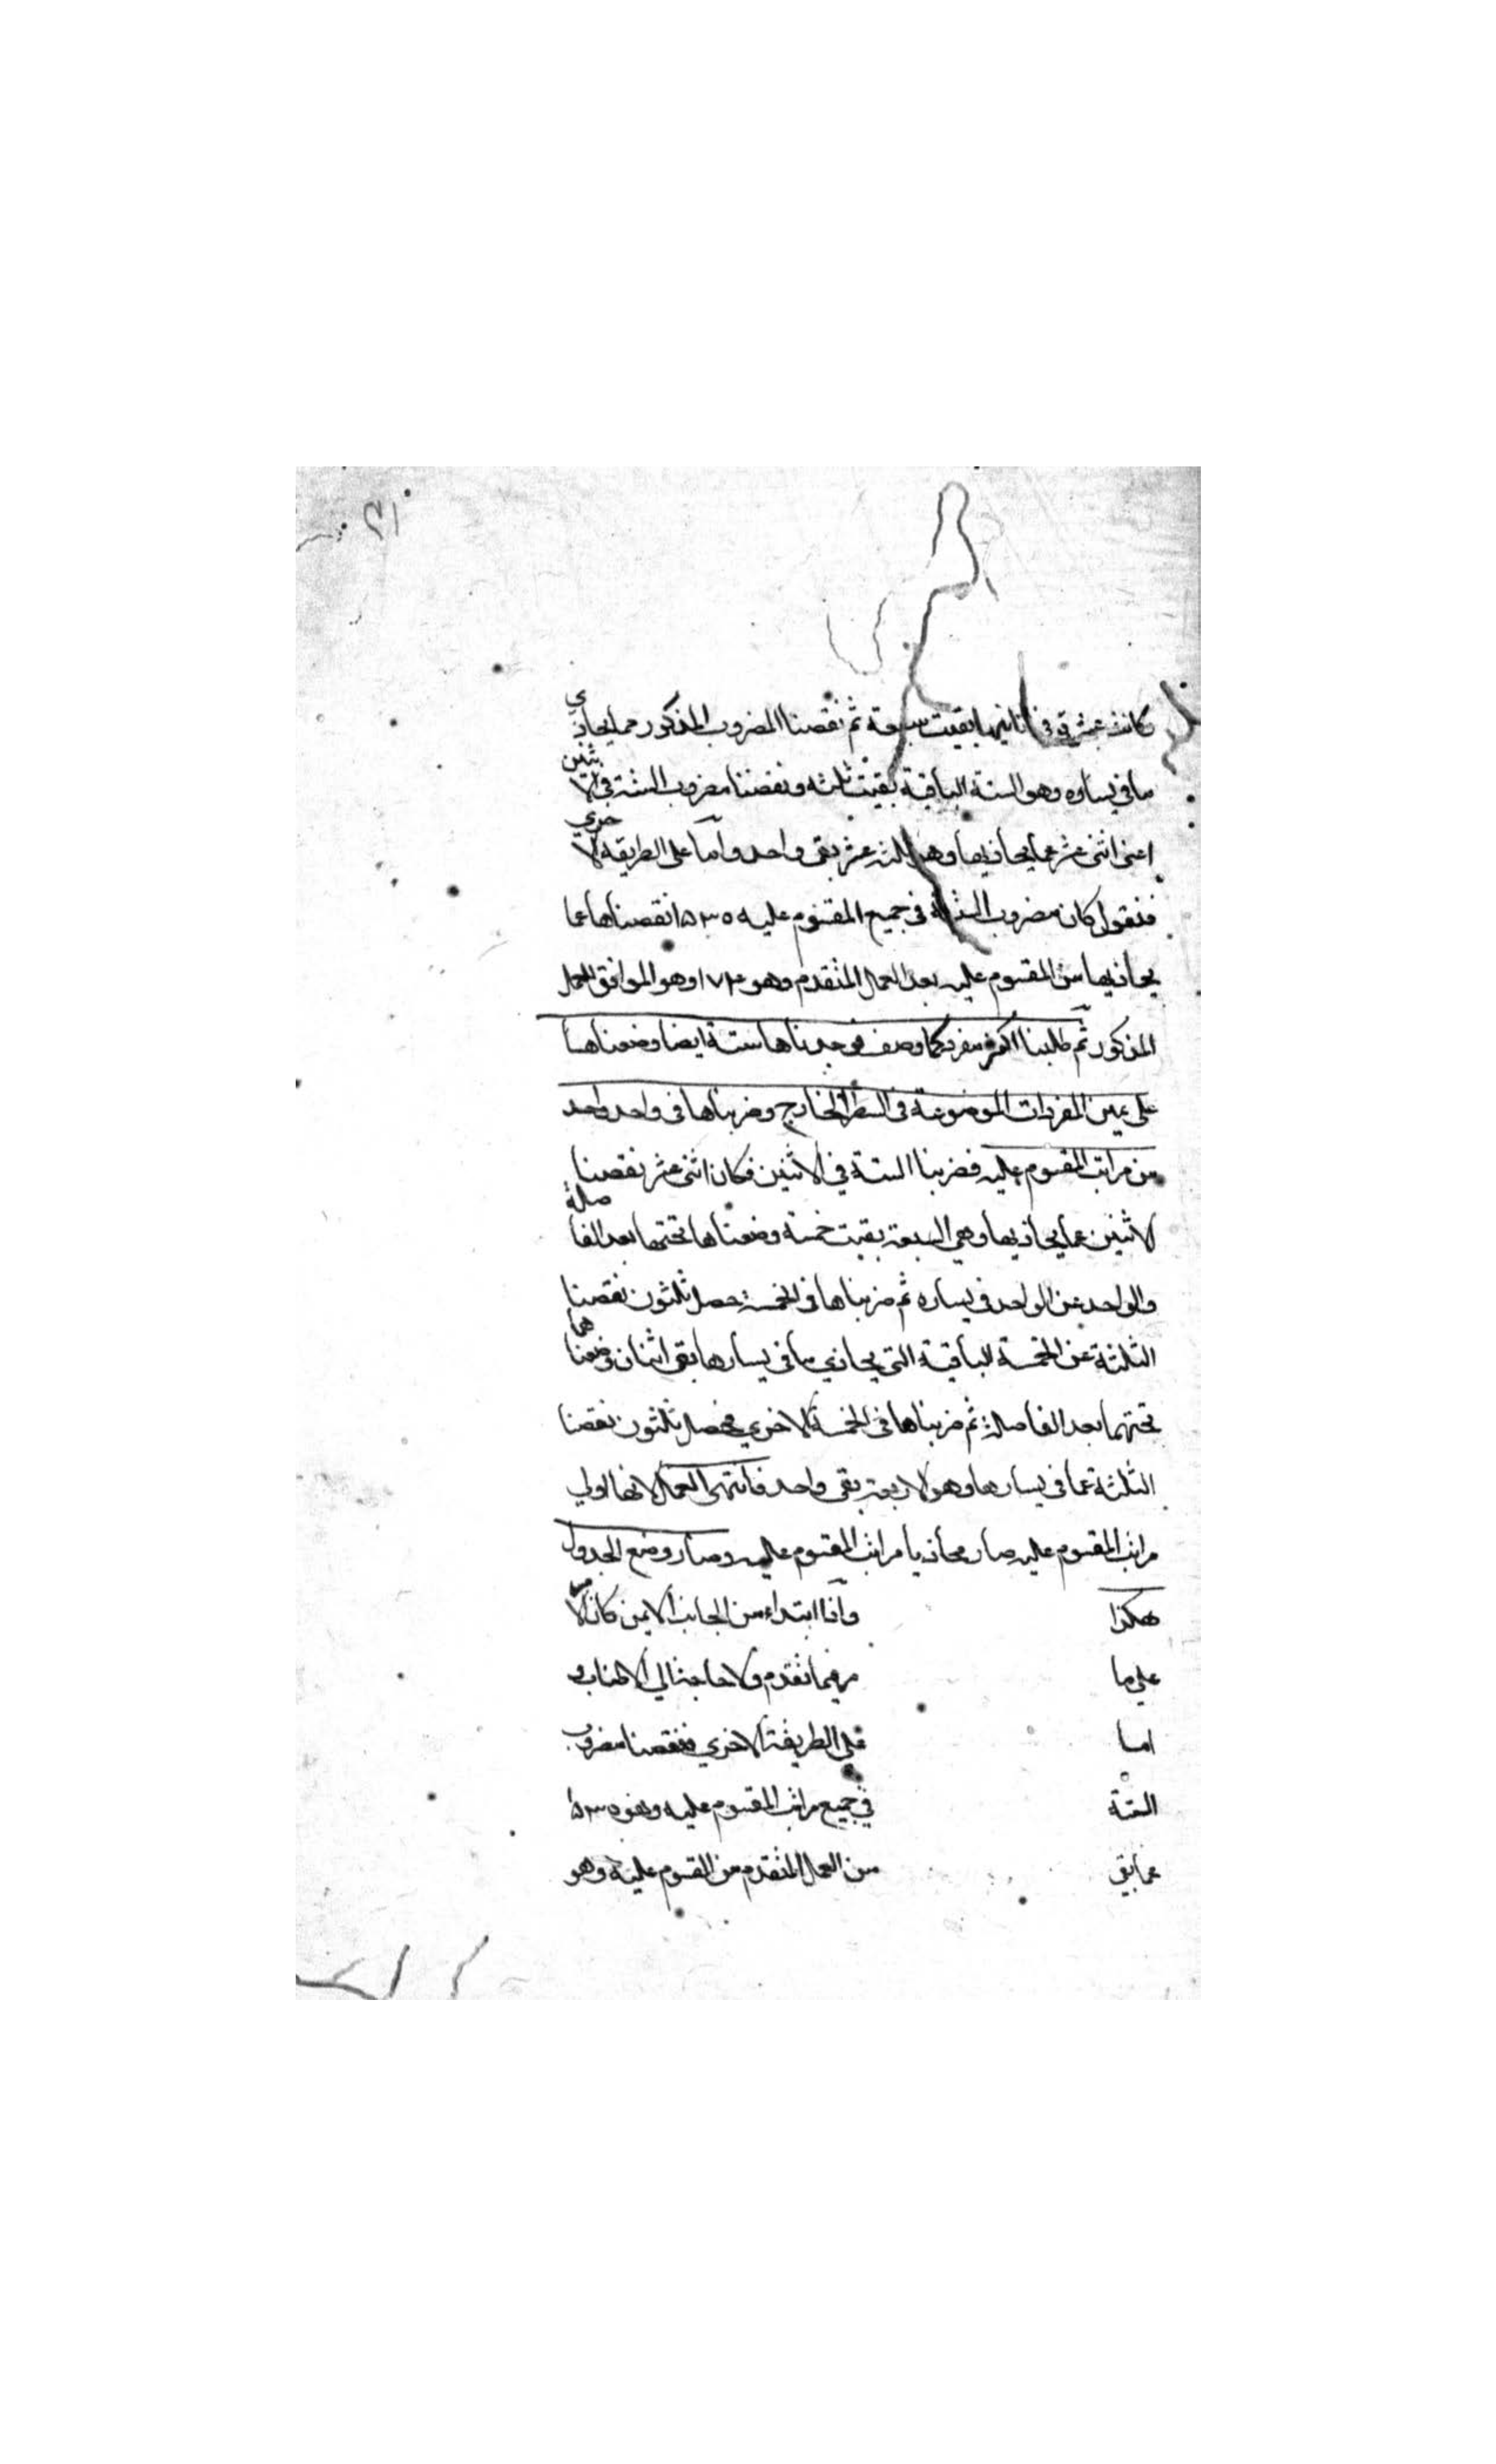 ٢١
كانت عشرة في ثانيها بقيت سبعة ثم نقصنا المضروب المذكور مما يحاذي
ما في يساره وهو الستة الباقية بقيت ثلثه ونقصنا مضروب الستة في الاثنين
اعنى اثنى عشر عما يحاذيها وهو ثلثه عشر بقى واحد واما على الطريقه الاخرى
فنقول كان مضروب الستة في جميع المقسوم عليه ١٥٣٠ نقصناها عما
يحاذيها من المقسوم عليه بعد العمل المتقدم وهو ١٧٤ وهو الموافق للعمل
المذكور ثم طلبنا اكثر مفرد كما وصف فوجدناها ستة ايضا وضعناها
على يمين المفردات الموضوعة في السطر الخارج وضربناها في واحد واحد
من مراتب المقسوم عليه فضربنا الستة في الاثنين فكان اثنى عشر نقصنا
الاثنين عما يحاذيها وهي السبعة بقيت خمسة وضعناها تحتها بعد الفاصلة
والواحد عن الواحد في يساره ثم ضربناها في الخمسة حصل ثلثون نقصنا
الثلثة عن الخمسة الباقية التي يحاذي ما في يسارها بقى اثنان وضعناهما
تحتهما بعد الفاصلة ثم ضربناها في الخمسة الاخرى فحصل ثلثون نقصنا
الثلثة عما في يسارها وهو الاربعة بقى واحد فانتهى العمل لانها اولى
مراتب المقسوم عليه صار محاذيا مراتب المقسوم عليه وصار وضع الجدول
هكذا واذا ابتداء من الجانب الايمن كان الامر
على ما مر فيما تقدم ولا حاجة الى الاطناب
اما على الطريقة الاخرى فنقصنا مضروب
الستة في جميع مراتب المقسوم عليه وهو ١٥٣٠
عما بقي من العمل المتقدم من المقسوم عليه وهو